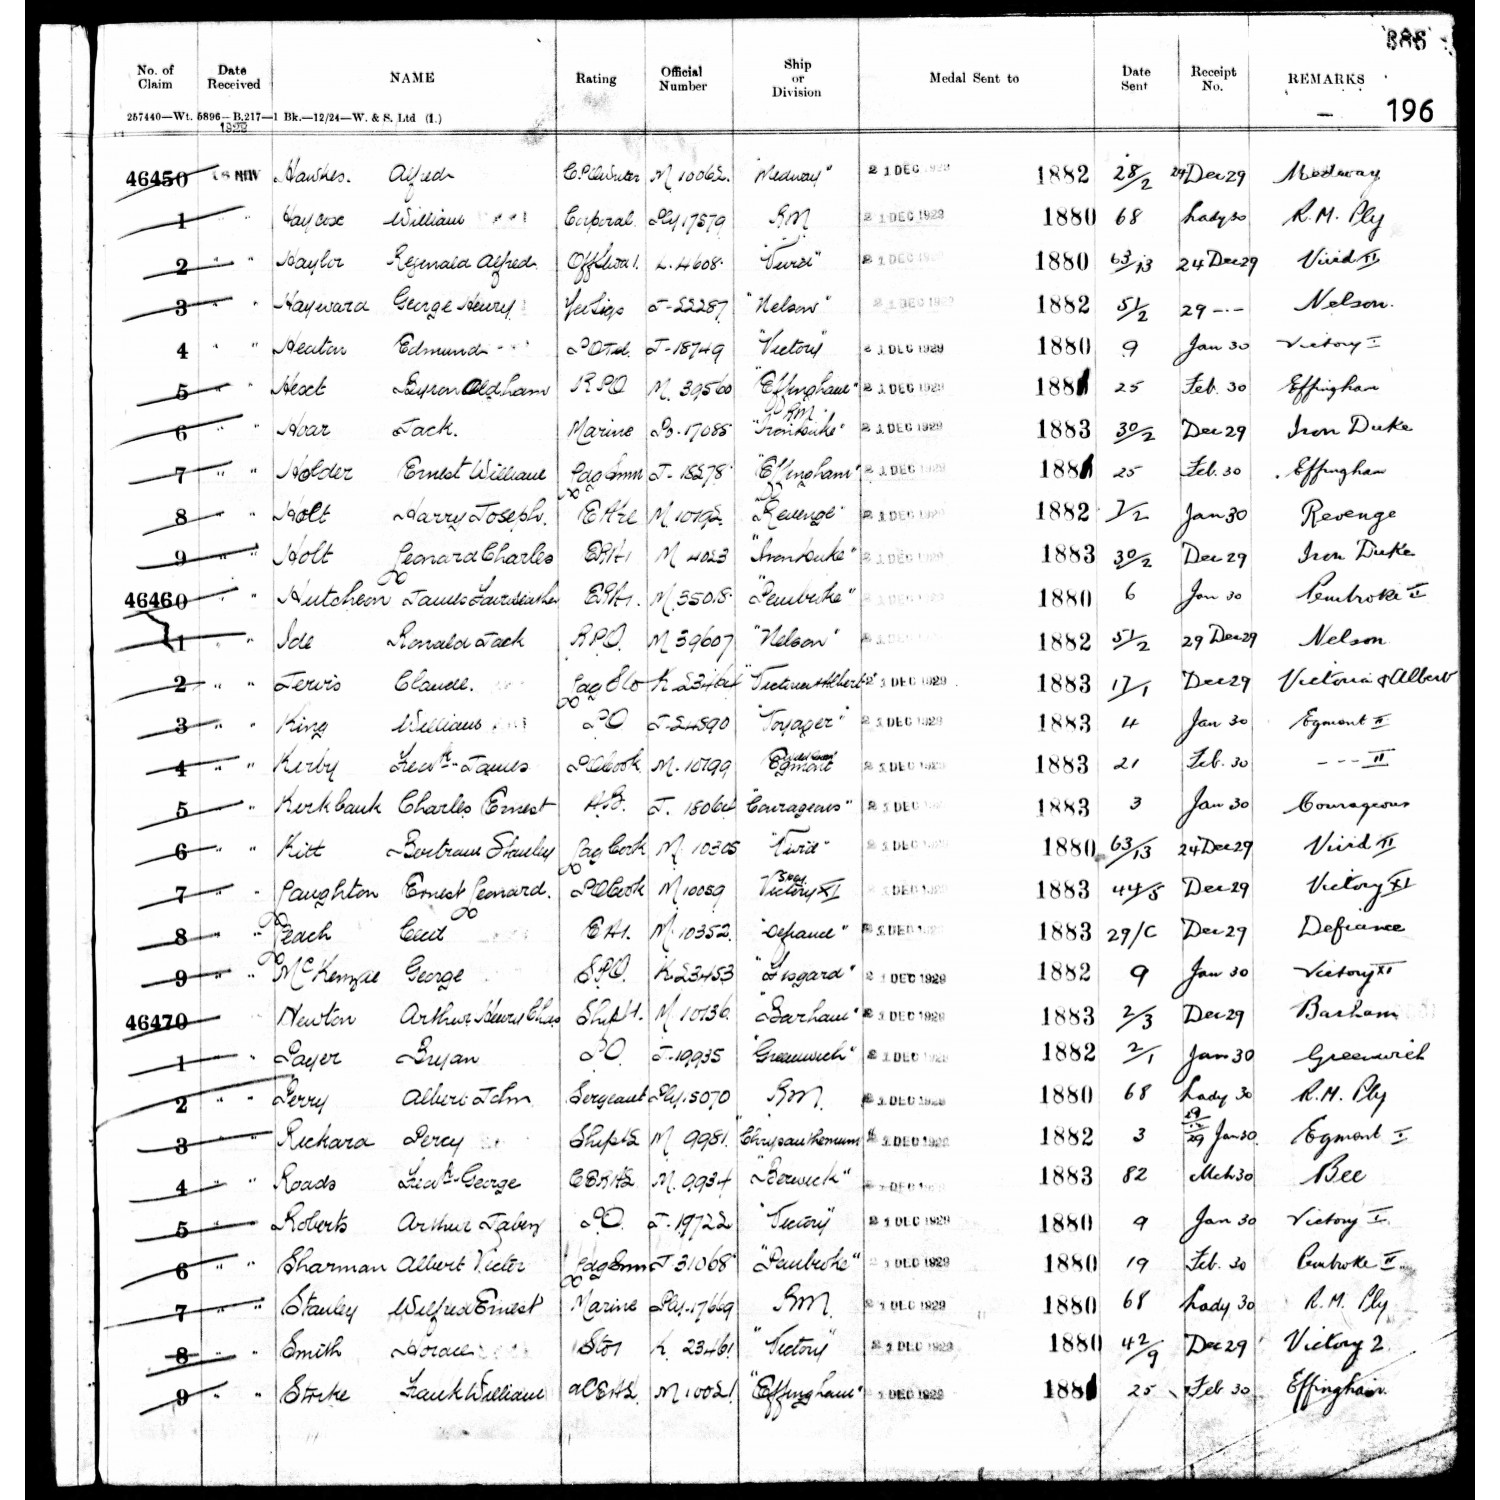 886
No. of Claim Date Received NAME Rating Official Number Ship or Division Medal Sent to Date Sent Receipt No. REMARKS
257440—Wt. 5896—B.217—1 Bk.—12/24—W. & S. Ltd (1.) — 196
1929
46450 18 NOV Hawkes. Alfred M 10062. "Medway" 21 DEC 1929 1882 28/2 24 Dec 29 Medway
1 " " Haycox William Corporal Ply 17579 RM 21 DEC 1929 1880 68 Lady 30 R.M. Ply
2 " " Haylor Reginald Alfred L. 4608 "Vivid" 21 DEC 1929 1880 63/13 24 Dec 29 Vivid II
3 " " Hayward George Henry Yeo Sigs J-22287 "Nelson" 21 DEC 1929 1882 51/2 29 -·- Nelson.
4 " " Heaton Edmund PO Tel. J-18749 "Victory" 21 DEC 1929 1880 9 Jan 30 Victory I
5 " " Hext Byron Oldham RPO M. 39560 "Effingham" 21 DEC 1929 1881 25 Feb. 30 Effingham
6 " " Hoar Jack. Marine Po-17085 RM. "Iron Duke" 21 DEC 1929 1883 30/2 Dec 29 Iron Duke
7 " " Holder Ernest William J-18278 "Effingham" 21 DEC 1929 1881 25 Feb. 30 Effingham
8 " " Holt Harry Joseph. M 10192 "Revenge" 21 DEC 1929 1882 7/2 Jan 30 Revenge
9 " " Holt Leonard Charles ERA1 M 4023 "Iron Duke" 21 DEC 1929 1883 30/2 Dec 29 Iron Duke
46460 " " Hutcheon James Fairweather ERA1. M. 35018 "Pembroke" 21 DEC 1929 1880 6 Jan 30 Pembroke II
1 " Ide Ronald Jack R.P.O. M 39607 "Nelson" 21 DEC 1929 1882 51/2 29 Dec 29 Nelson
2 " " Jervis Claude. K 23464 "Victoria & Albert" 21 DEC 1929 1883 17/1 Dec 29 Victoria & Albert
3 " " King William PO J-24590 "Voyager" 21 DEC 1929 1883 4 Jan 30 Egmont II
4 " " Kerby Fredk. James PO Cook M. 10199 Egmont 21 DEC 1929 1883 21 Feb. 30 - - - II
5 " Kirkbank Charles Ernest A.B. J. 18064 "Courageous" 21 DEC 1929 1883 3 Jan 30 Courageous
6 " " Kitt Bertram Stanley Ldg Cook M. 10305 "Vivid" 21 DEC 1929 1880 63/13 24 Dec 29 Vivid II
7 " " Laughton Ernest Leonard. PO Cook M 10059 Victory XI 21 DEC 1929 1883 44/5 Dec 29 Victory XI
8 " " Leach Cecil EA1. M 10352. "Defiance" 21 DEC 1929 1883 29/C Dec 29 Defiance
9 " " McKenzie George S.P.O. K 23453 "Fisgard" 21 DEC 1929 1882 9 Jan 30 Victory XI
46470 Newton Arthur Henry Chas Shipt1. M 10136 "Barham" 21 DEC 1929 1883 2/3 Dec 29 Barham
1 " Payer Bryan P.O. J-19935 "Greenwich" 21 DEC 1929 1882 2/1 Jan 30 Greenwich
2 " " Perry Albert John Sergeant Ply. 15070 RM. 21 DEC 1929 1880 68 Lady 30 R.M. Ply
3 " Rickard Percy Shipt2 M 9981. "Chrysanthemum" 21 DEC 1929 1882 3 19/12/29 Jan 30. Egmont I
4 " " Roads Fredk. George CERA2 M. 9934 "Berwick" 21 DEC 1929 1883 82 Mch 30 Bee
5 " " Roberts Arthur Jabez P.O. J-19722 "Victory" 21 DEC 1929 1880 9 Jan 30 Victory I.
6 " " Sharman Albert Victor J 31068 "Pembroke" 21 DEC 1929 1880 19 Feb. 30 Pembroke II.
7 " " Stanley Wilfred Ernest Marine Ply. 17669 RM 21 DEC 1929 1880 68 Lady 30 R.M. Ply
8 " " Smith Horace Sto1 K. 23461 "Victory" 21 DEC 1929 1880 42/9 Dec 29 Victory 2
9 " " Strike Frank William M 10021 "Effingham" 21 DEC 1929 1881 25 Feb 30 Effingham